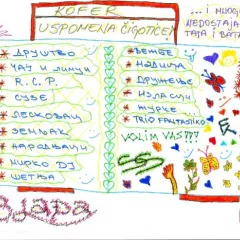 KOFER
USPOMENA ČIGOTICE
... i MNOGO
NEDOSTAJA
TATA i BATA
* ДРУШТВО
* ЧАЧ и ЛИМЦИ
* R.C.P.
* СУЗЕ
* ЛЕСКОВАЦ
* ЗЕМЉАК
* НАРОДЊАЦИ
* МИРКО DJ
* ШЕТЊА
* ВЕЖБЕ
* НАДИЦА
* ДРУЖЕЊЕ
* ИЗЛАСЦИ
* ЖУРКЕ
* TRIO FANTASTIKO
VOLIM VAS!!!